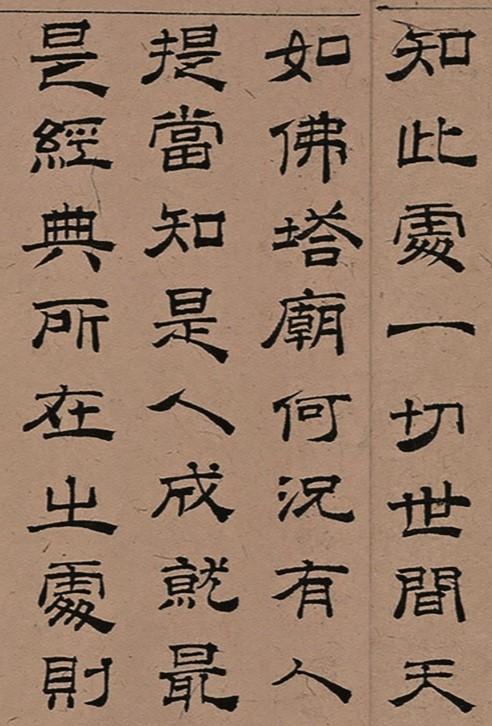 知此處一切世間天
如佛塔廟何況有人
提當知是人成就最
是經典所在之處則